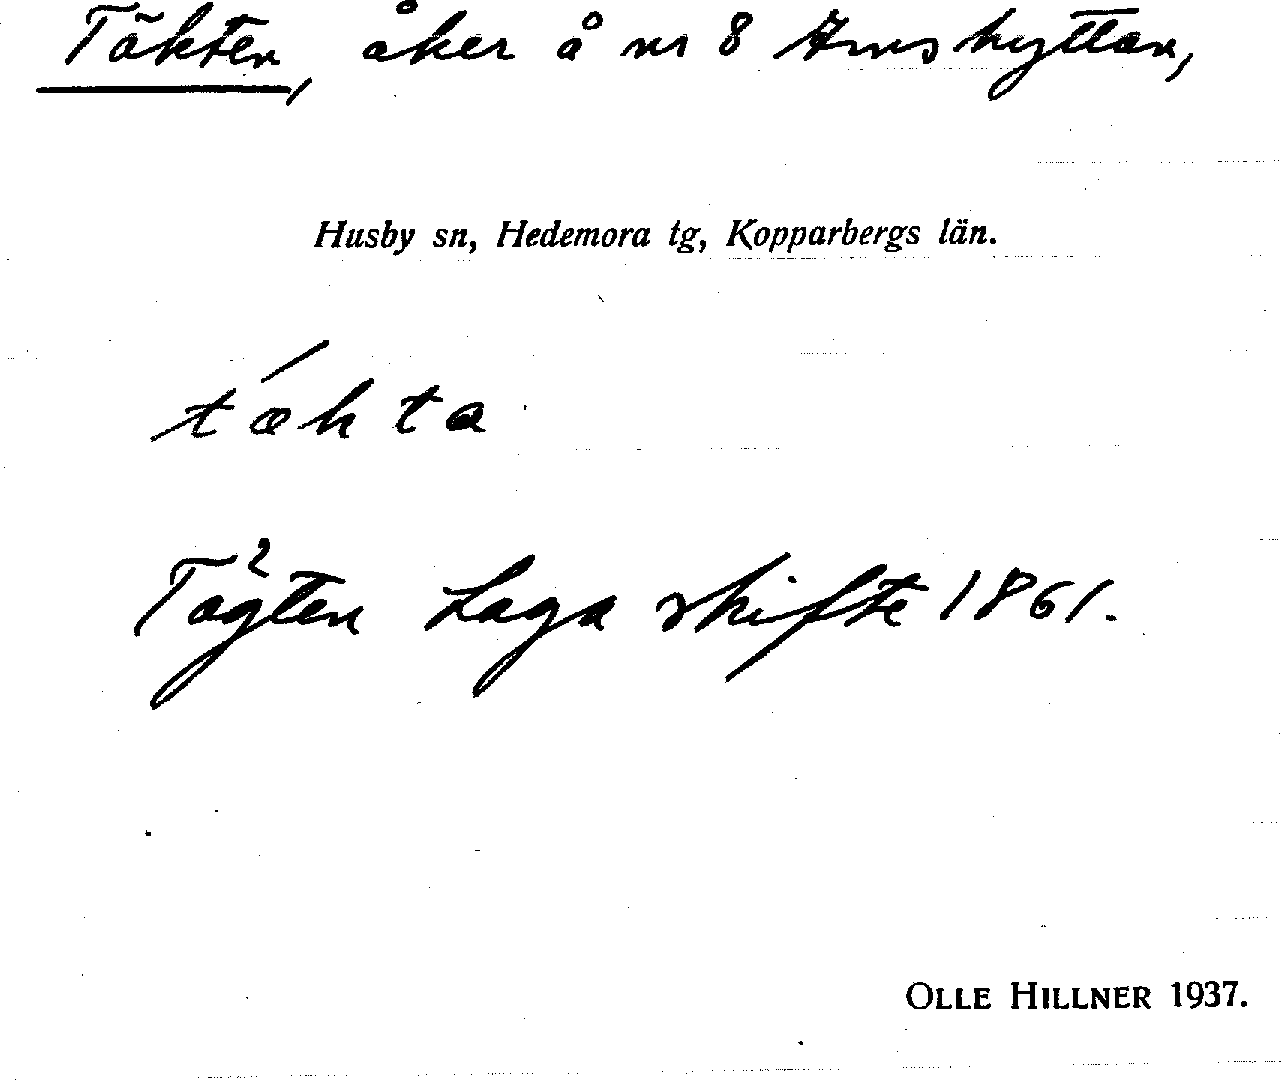 Täkten, åker å nr 8 Amshyttan,
Husby sn, Hedemora tg, Kopparbergs län.
tǽkta
Tägten Laga skifte 1861.
OLLE HILLNER 1937.